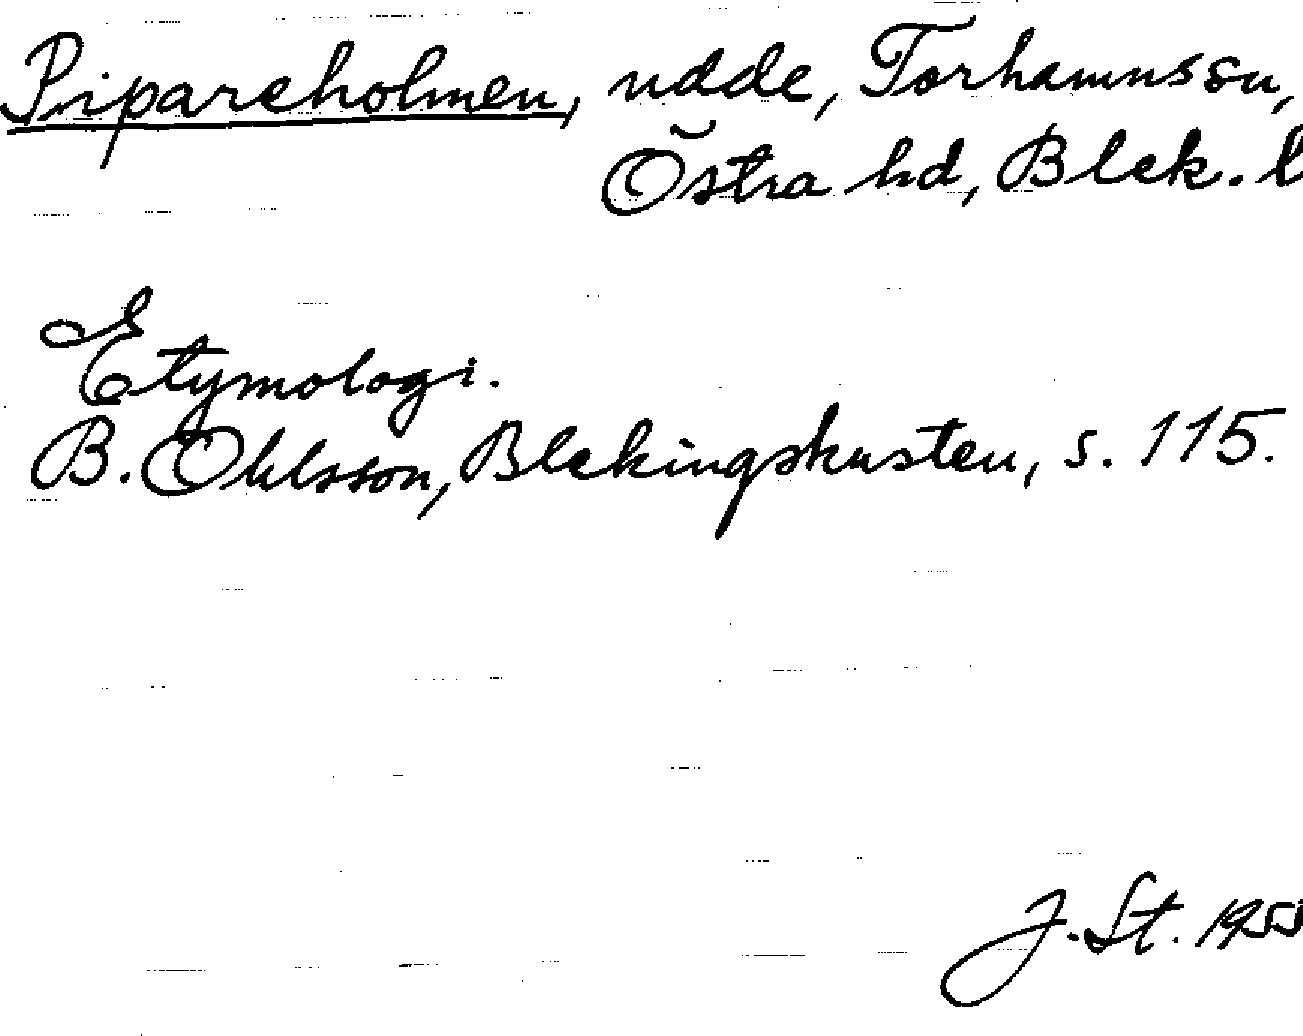 Pipareholmen, udde, Torhamnssn,
Östra hd, Blek. l
Etymologi.
B. Ohlsson, Blekingskusten, s. 115.
J. St. 1955